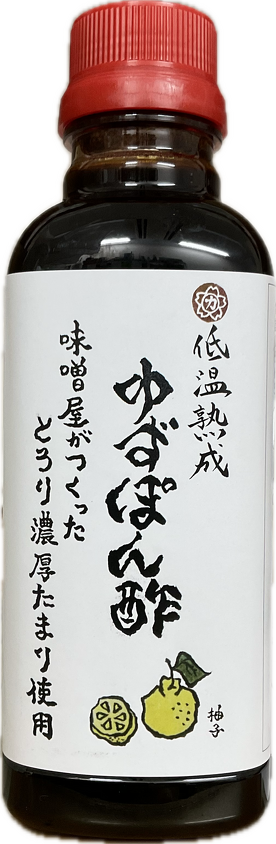 カ
低温熟成
ゆずぽん酢
味噌屋がつくった
とろり濃厚たまり使用
柚子